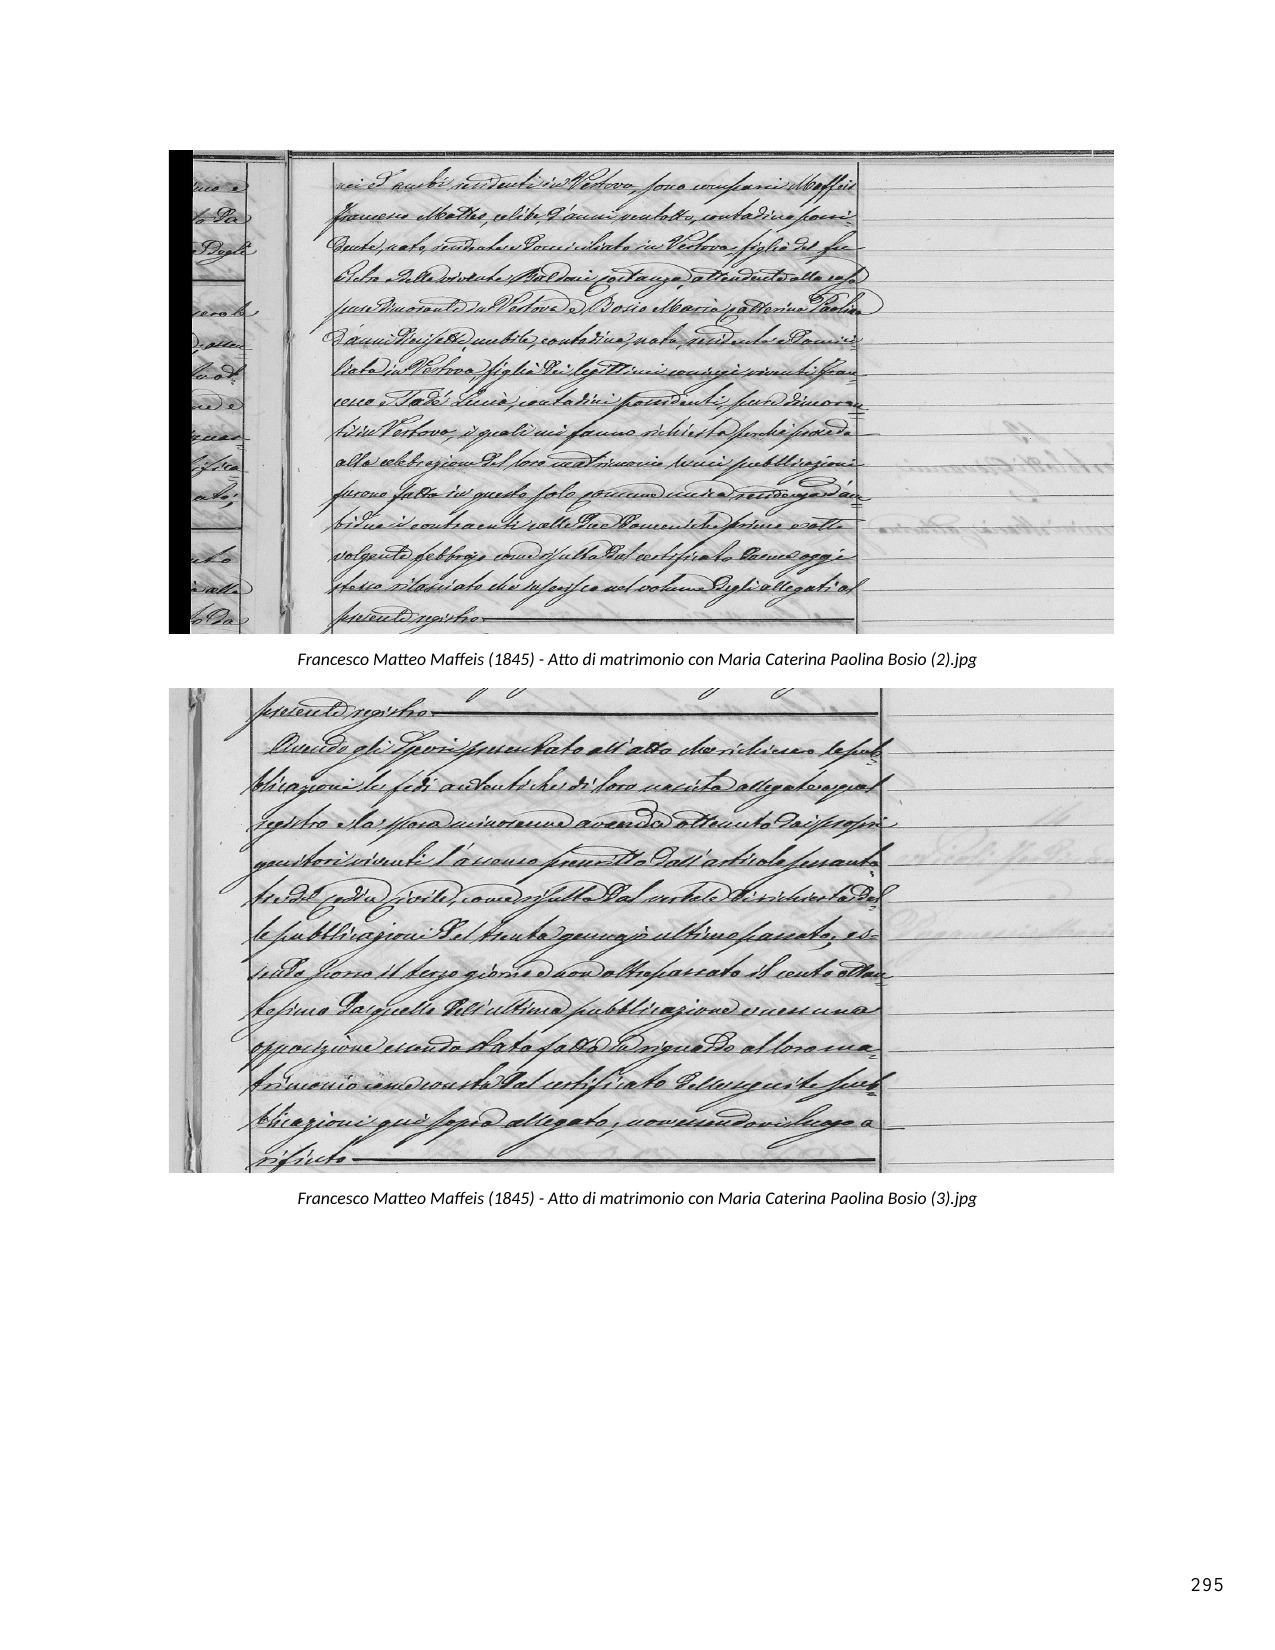 nei ed ambi residenti in Vestova, sono comparsi Maffeis
Francesco Matteo, celibe, d'anni ventotto, contadino possi-
dente, nato, residente e domiciliato in Vestova, figlio del fu
Pietro e della vivente Costanza, attendente alla casa
pure dimorante in Vestova e Bosio Maria Catterina Paolina
d'anni diecisette, nubile, contadina, nata, residente e domici-
liata in Vestova, figlia dei legittimi conjugi viventi Fran-
cesco e Tadé Lucia, contadini possidenti, pure dimoran-
ti in Vestova, i quali mi fanno richiesta perché proceda
alla celebrazione del loro matrimonio le cui pubblicazioni
furono fatte in questo solo comune unica residenza d'am-
bidue i contraenti nelle due domeniche prime
volgente febbrajo come risulta dal certificato da me oggi
stesso rilasciato che inserisco nel volume degli allegati al
presente registro
presente registro
Avendo gli sposi presentato all'atto che richiesero le pub-
blicazioni le fedi autentiche di loro nascita allegate a quel
registro e la sposa minorenne avendo ottenuto dai propri
genitori viventi l'assenso prescritto dall'articolo sessanta-
tre del Codice Civile, come risulta dal verbale di richiesta del-
le pubblicazioni del trenta gennajo ultimo passato, es-
sendo scorso il terzo giorno e non oltrepassato il cento ottan-
tesimo da quello dell'ultima pubblicazione e nessuna
opposizione essendo stata fatta a riguardo al loro ma-
trimonio come consta dal certificato delle eseguite pub-
blicazioni qui sopra allegato, non essendovi luogo a
rifiuto
Francesco Matteo Maffeis (1845) - Atto di matrimonio con Maria Caterina Paolina Bosio (2).jpg
Francesco Matteo Maffeis (1845) - Atto di matrimonio con Maria Caterina Paolina Bosio (3).jpg
295